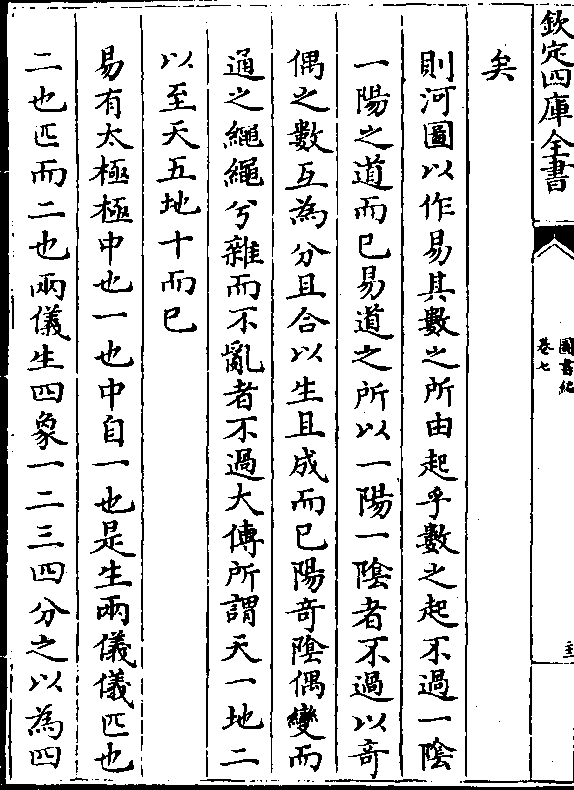 欽定四庫全書
圖書編
卷七
矣
則河圖以作易其數之所由起乎數之起不過一陰
一陽之道而已易道之所以一陽一陰者不過以奇
偶之數互為分且合以生且成而已陽奇陰偶變而
通之繩繩兮雜而不亂者不過大傳所謂天一地二
以至天五地十而已
易有太極極中也一也中自一也是生兩儀儀匹也
二也匹而二也兩儀生四象一二三四分之以為四